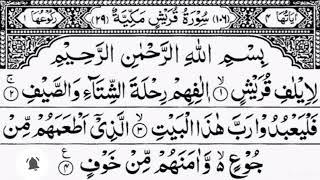 اٰیَاتُهَا ٤ (١٠٦) سُوْرَةُ قُرَيْشٍ مَكِّيَّةٌ (٢٩) رُكُوْعُهَا ١
بِسْمِ اللّٰهِ الرَّحْمٰنِ الرَّحِيْمِ
لِاِيْلٰفِ قُرَيْشٍ ۙ﴿١﴾ اٖلٰفِهِمْ رِحْلَةَ الشِّتَآءِ وَالصَّيْفِ ۚ﴿٢﴾
فَلْيَعْبُدُوْا رَبَّ هٰذَا الْبَيْتِ ۙ﴿٣﴾ الَّذِيْٓ اَطْعَمَهُمْ مِّنْ
جُوْعٍ ۬ۙ وَّاٰمَنَهُمْ مِّنْ خَوْفٍ ﴿٤﴾ ع